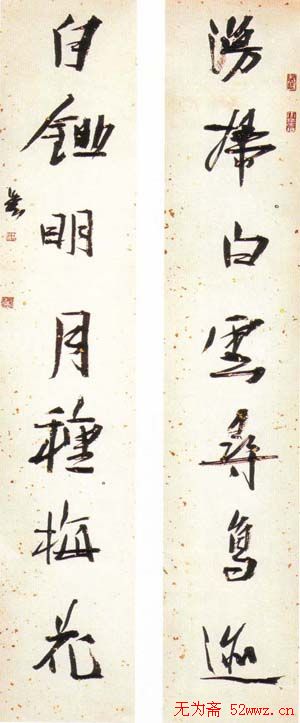 漫掃白雲尋鳥迹
自鋤明月種梅花
无为斋 52wwz.cn